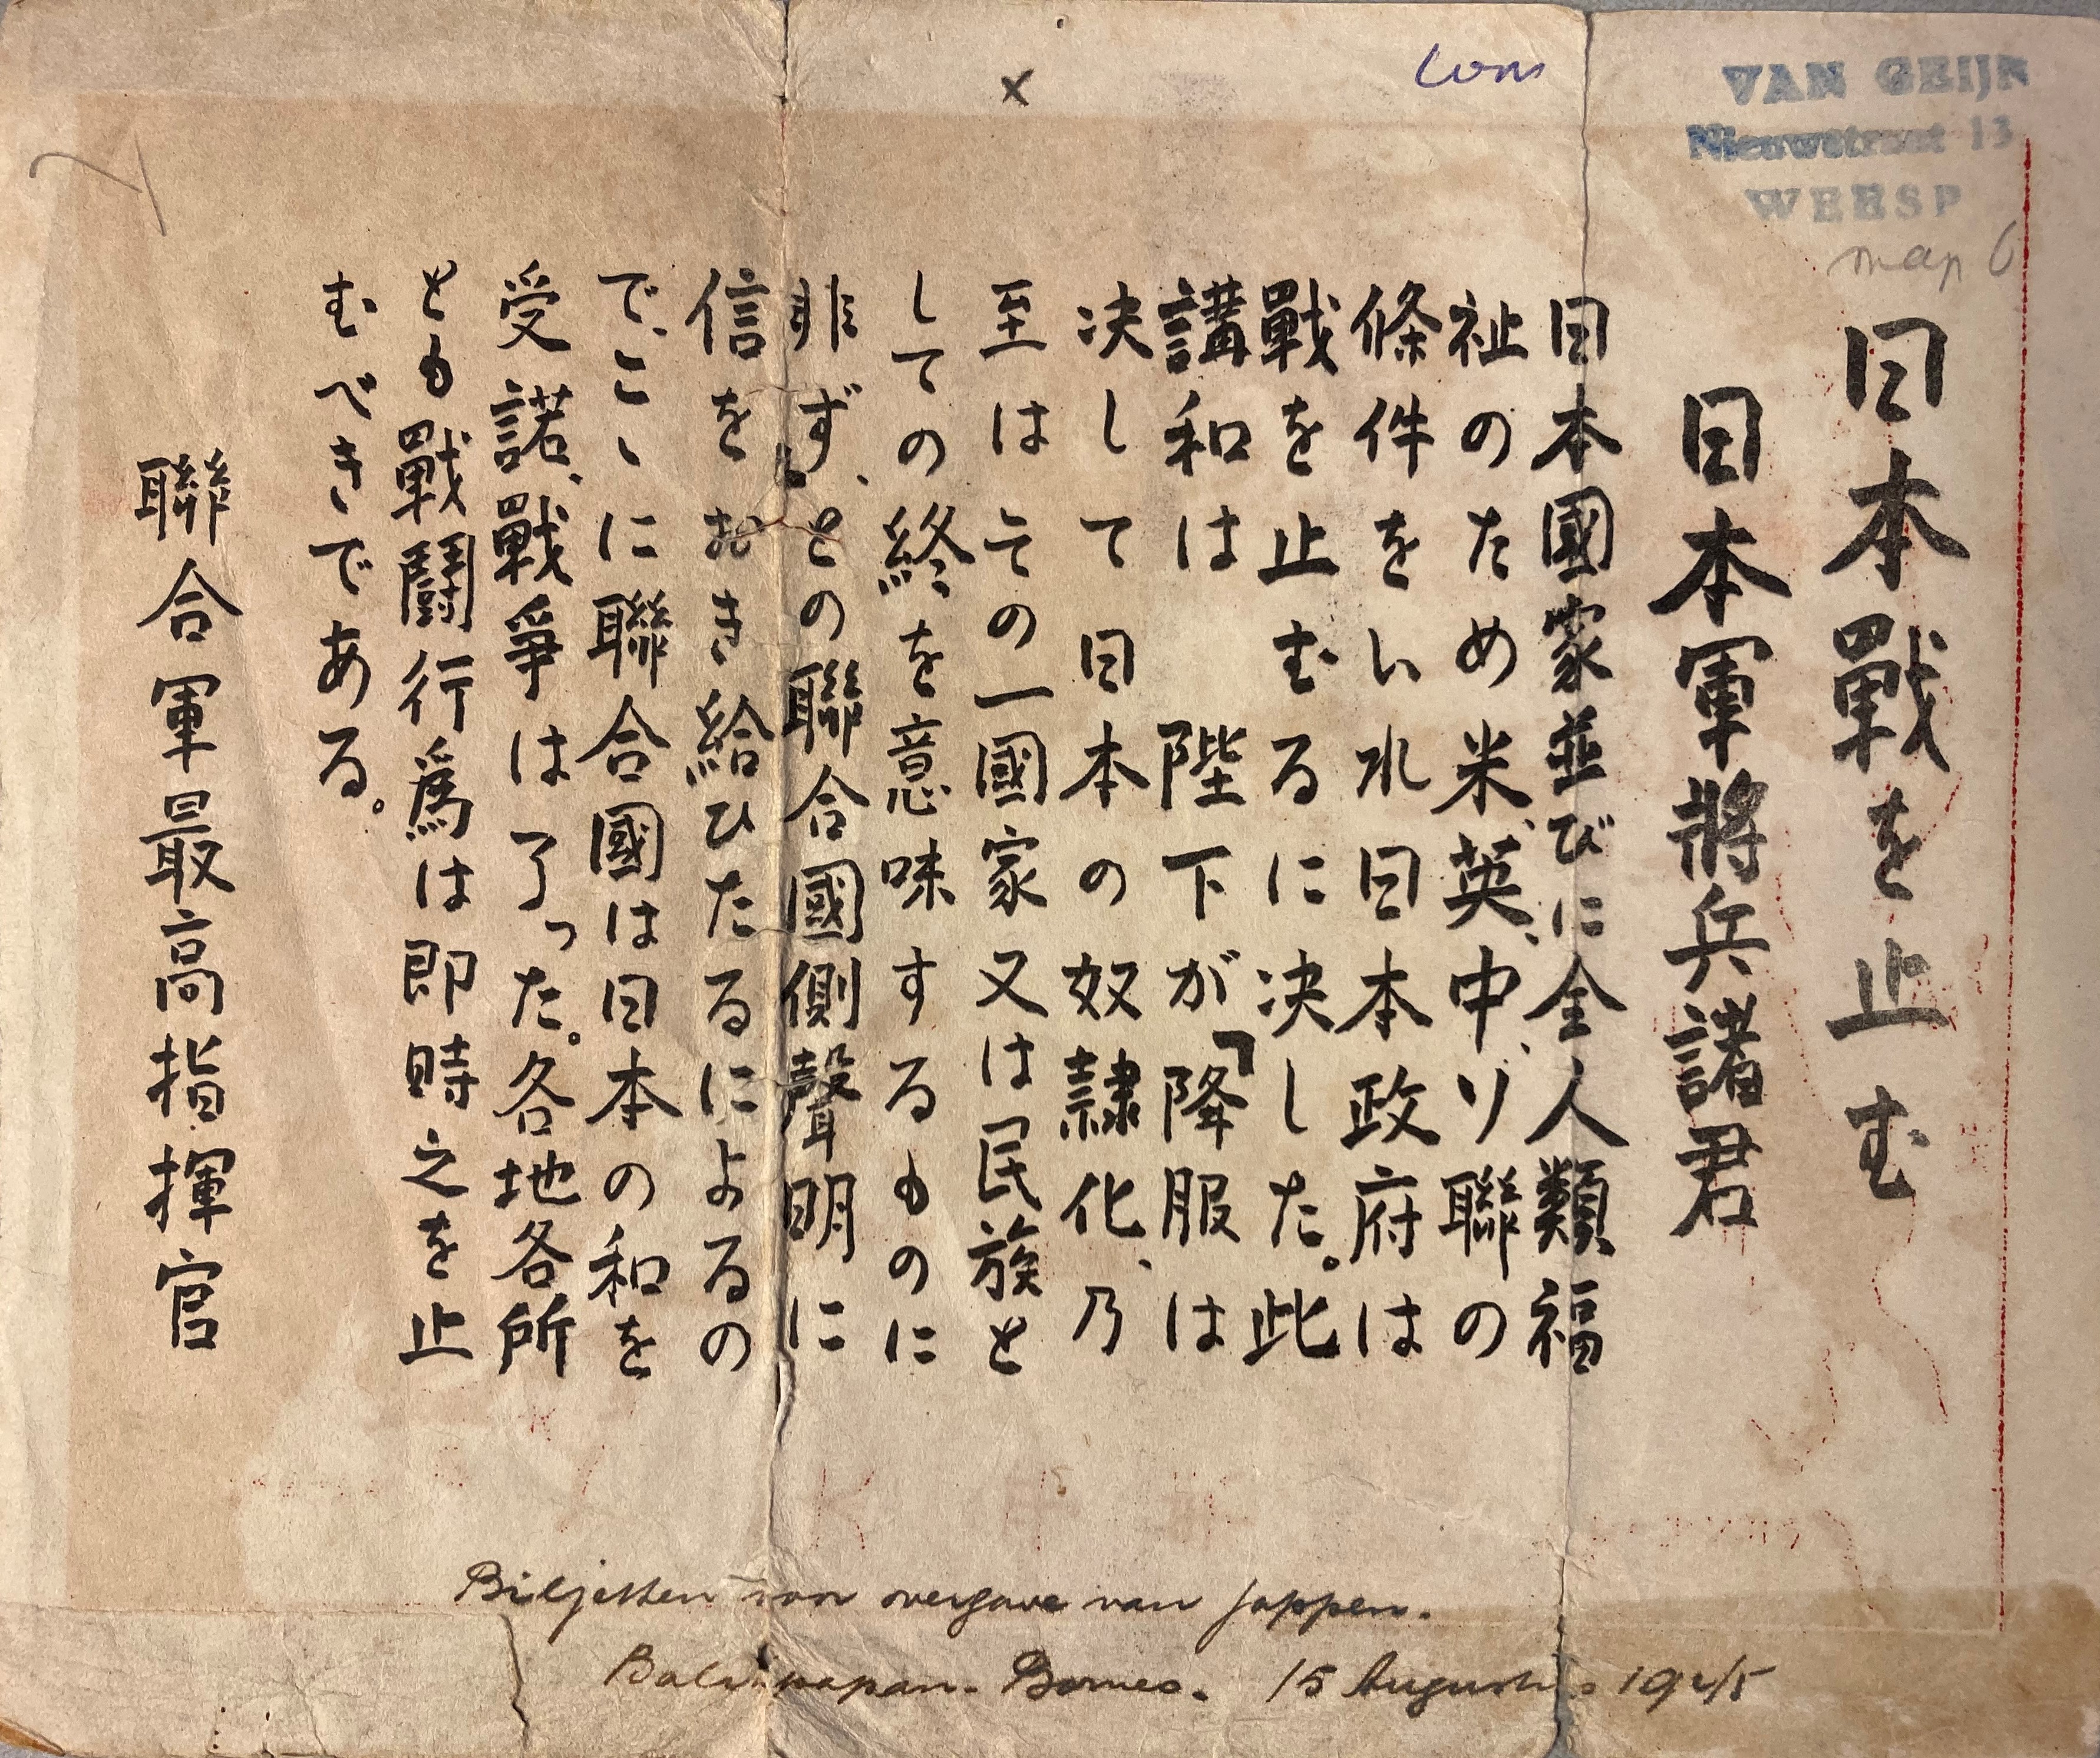 com
VAN GEIJN
Nieuwstraat 13
WEESP
map 6
x
日本戰を止む
日本軍將兵諸君
日本國家並びに全人類福
祉のため米、英、中、ソ聯の
條件をいれ日本政府は
戰を止むるに決した。此
講和は 陛下が「降服は
決して日本の奴隷化、乃
至はその一國家又は民族と
しての終を意味するものに
非ず、との聯合國側聲明に
信をおき給ひたるによるの
で、こゝに聯合國は日本の和を
受諾、戰爭は了った。各地各所
とも戰鬪行爲は即時之を止
むべきである。
聯合軍最高指揮官
Biljetten voor overgave van Jappen.
Balikpapan - Borneo. 15 Augustus 1945